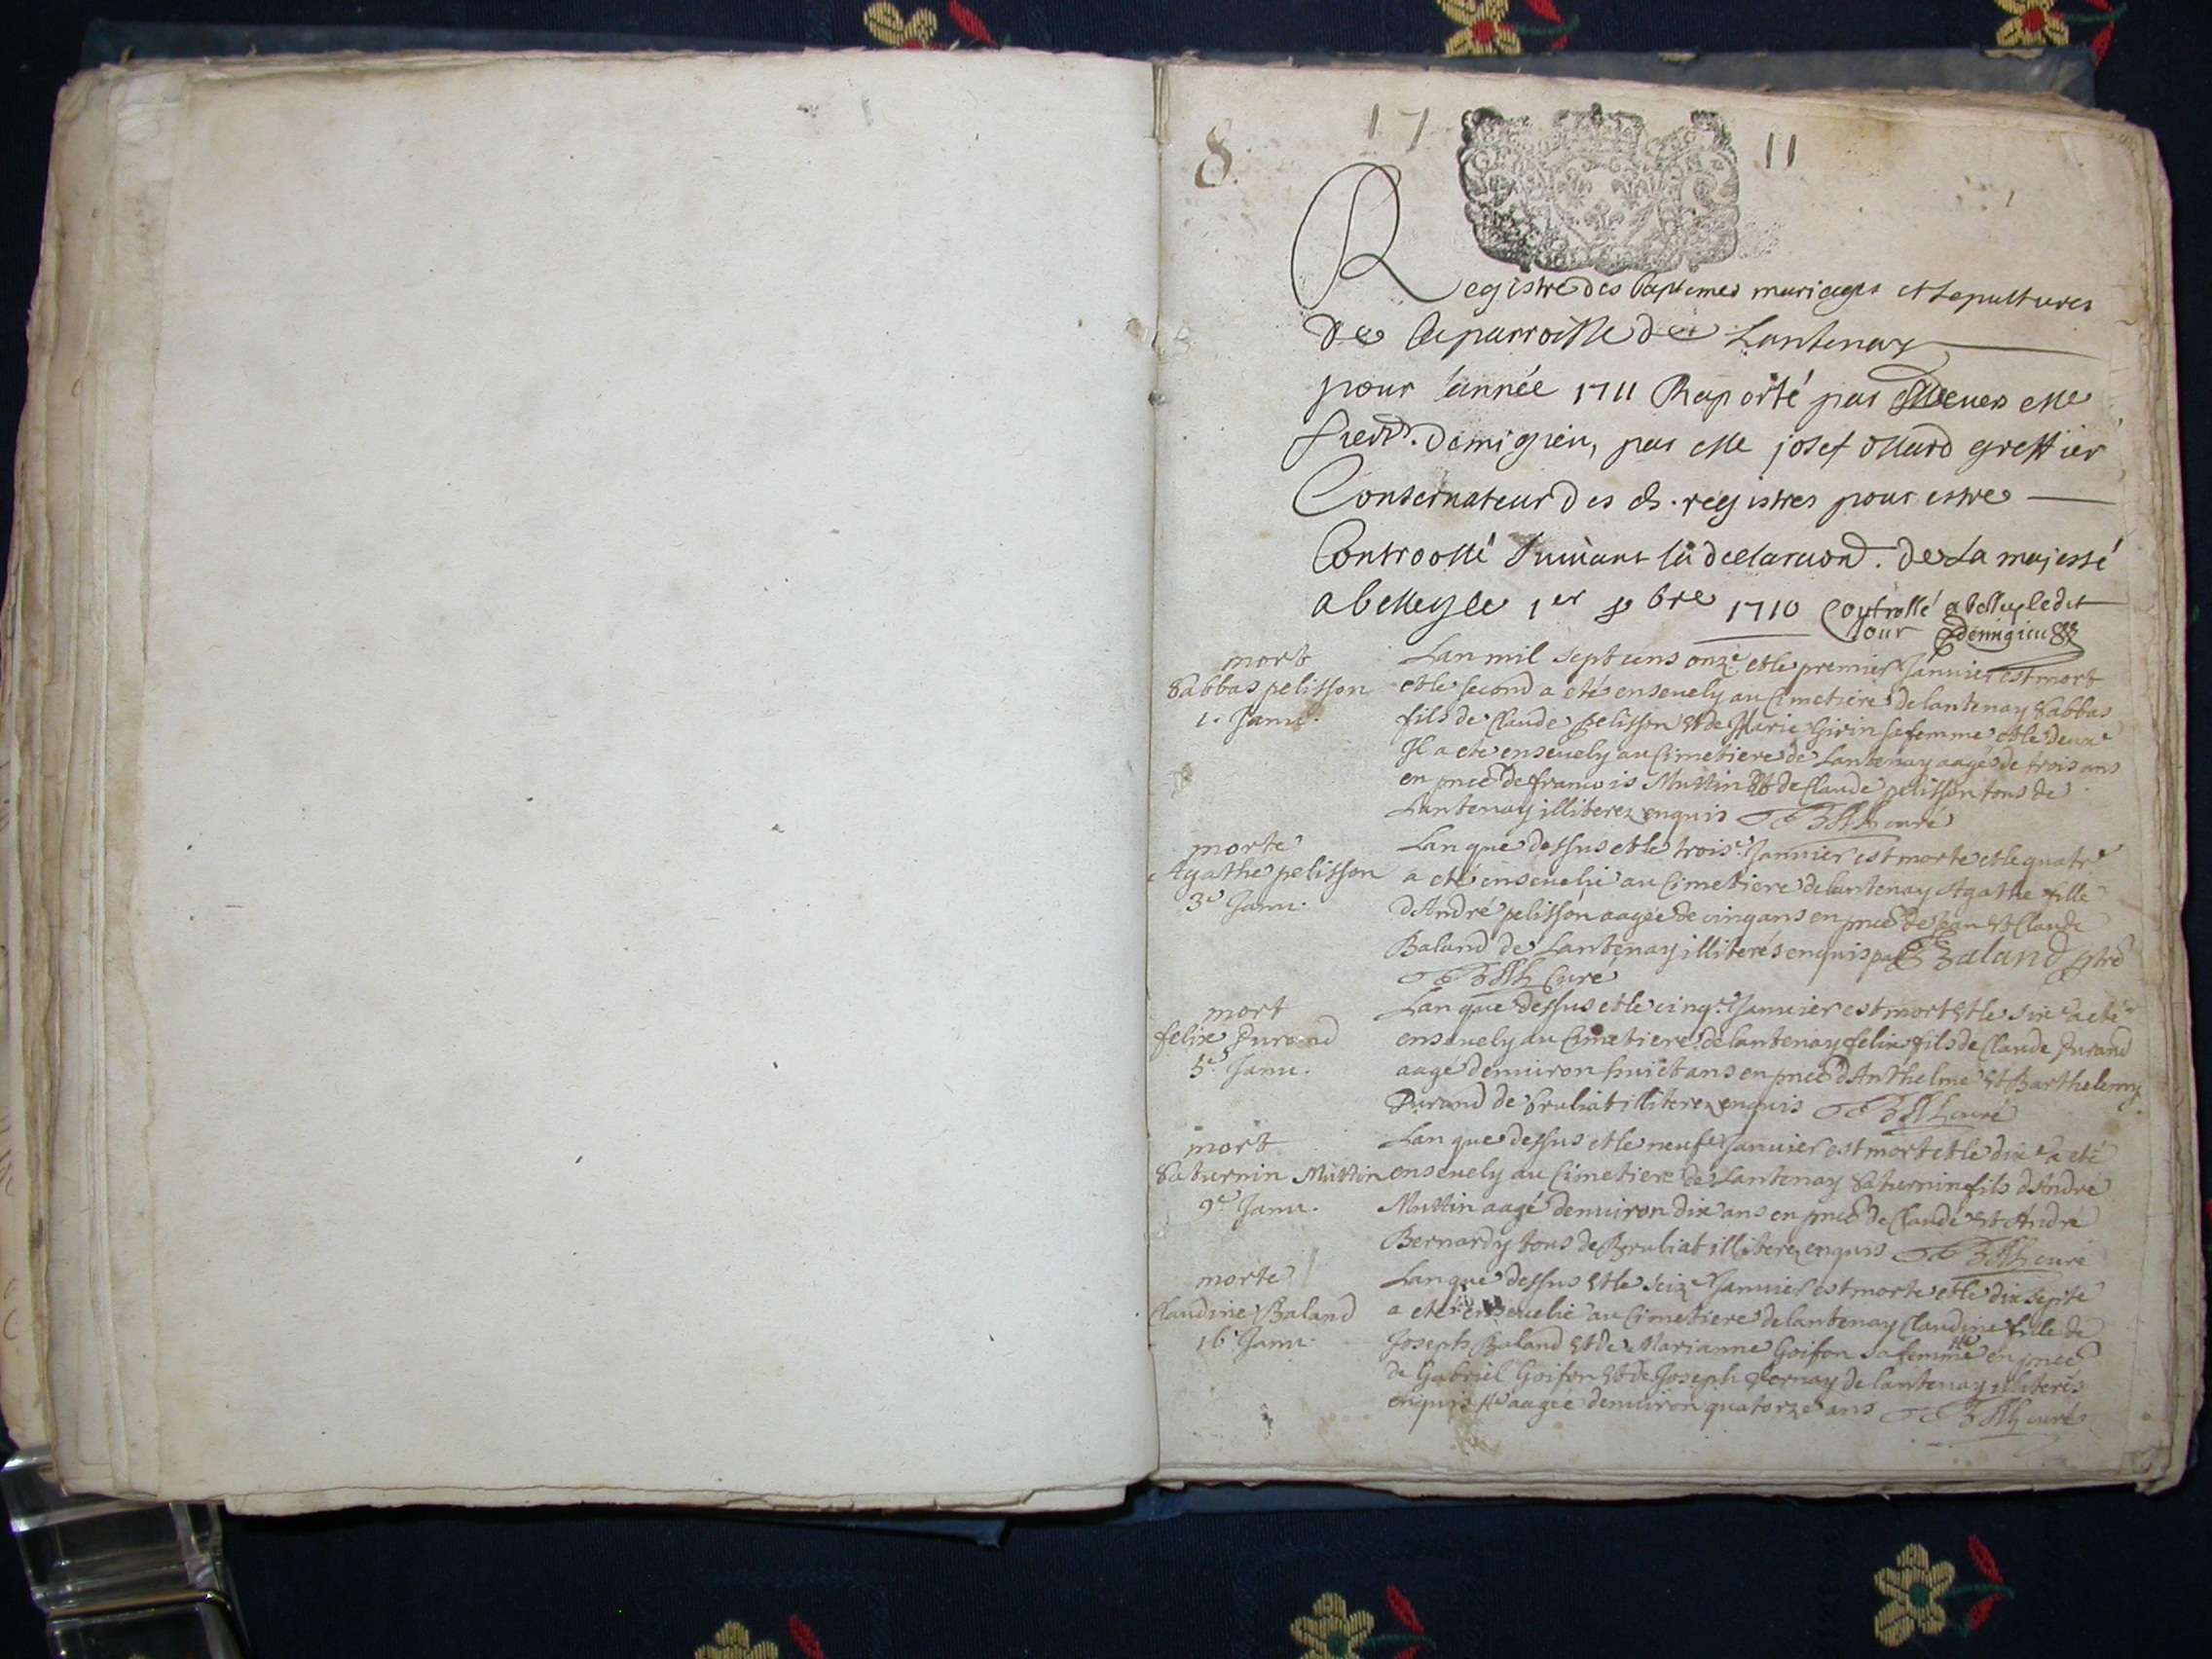 8. 17 11
Registre des baptemes mariages et sepultures
de la parroisse de Lantenay
pour l'année 1711 Raporté par
Demigieu, par Me josef greffier
Conservateur des ds. registres pour estre
Controollé suivant la declaraon. de sa majesté
a belley le 1er xbre 1710 Controllé a belley ledit
jour Demigieu
mort
Sabbas pelisson
1. Janu.
Lan mil sept cens onze et le premier Janvier est mort
et le second a eté ensevely au Cimetiere de lantenay Sabbas
fils de Claude pelisson et de Marie Girin sa femme et le deuxe
Il a eté ensevely au Cimetiere de Lantenay aagé de trois ans
en pnce de francois Muttin et de Claude pelisson tous de
Lantenay illiterez enquis curé
morte
Agathe pelisson
3e Janu.
Lan que dessus et le troise. Janvier est morte et le quatre
a eté ensevelie au Cimetiere de lantenay Agathe fille
d'André pelisson aagée de cinq ans en pnce de Jean et Claude
Baland de Lantenay illiterés enquis par Baland ptre
Curé
mort
felix Durand
5e. Janu.
Lan que dessus et le cinqe. Janvier est mort et le sixe a eté
ensevely au Cimetiere de lantenay felix fils de Claude Durand
aagé denviron huict ans en pnce d'Anthelme et Barthelemy
Durand de bruliat illiterez enquis curé
mort
Saturnin Muttin
9e Janu.
Lan que dessus et le neufe Janvier est mort et le dixe a eté
ensevely au Cimetiere de Lantenay Saturnin fils d'André
Muttin aagé denviron dix ans en pnce de Claude et André
Bernardy tous de Bruliat illiterez enquis curé
morte
Claudine Baland
16 Janu.
Lan que dessus et le seize Janvier est morte et le dix septe
a eté ensevelie au Cimetiere de lantenay Claudine fille de
Joseph Baland et de Marianne Goifon sa femme en pnce
de Gabriel Goifon et de Joseph de lantenay illiterés
enquis aagée denviron quatorze ans curé